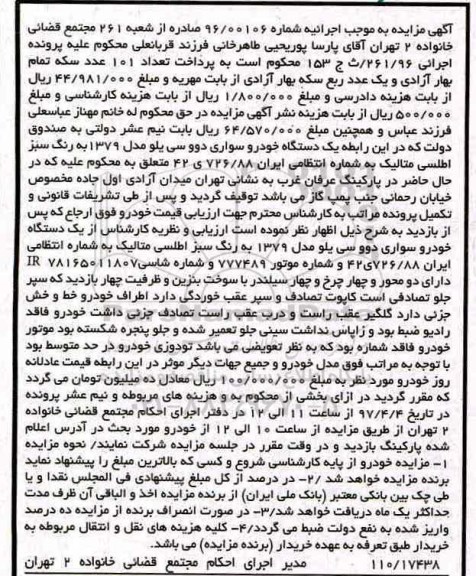 آگهی مزایده به موجب اجرائیه شماره ۹۶/۰۰۱۰۶ صادره از شعبه ۲۶۱ مجتمع قضائی
خانواده ۲ تهران آقای پارسا پوریحیی طاهرخانی فرزند قربانعلی محکوم علیه پرونده
اجرائی ۲۶۱/۹۶/ث ج ۱۵۳ محکوم است به پرداخت تعداد ۱۰۱ عدد سکه تمام
بهار آزادی و یک عدد ربع سکه بهار آزادی از بابت مهریه و مبلغ ۴۴/۹۸۱/۰۰۰ ریال
از بابت هزینه دادرسی و مبلغ ۱/۸۰۰/۰۰۰ ریال از بابت هزینه کارشناسی و مبلغ
۵۰۰/۰۰۰ ریال از بابت هزینه نشر آگهی مزایده در حق محکوم له خانم مهناز عباسعلی
فرزند عباس و همچنین مبلغ ۶۴/۵۷۰/۰۰۰ ریال بابت نیم عشر دولتی به صندوق
دولت که در این رابطه یک دستگاه خودرو سواری دوو سی یلو مدل ۱۳۷۹ به رنگ سبز
اطلسی متالیک به شماره انتظامی ایران ۷۲۶/۸۸ ی ۴۲ متعلق به محکوم علیه که در
حال حاضر در پارکینگ عرفان غرب به نشانی تهران میدان آزادی اول جاده مخصوص
خیابان رحمانی جنب پمپ گاز می باشد توقیف گردید و پس از طی تشریفات قانونی و
تکمیل پرونده مراتب به کارشناس محترم جهت ارزیابی قیمت خودرو فوق ارجاع که پس
از بازدید به شرح ذیل اظهار نظر نموده است ارزیابی و نظریه کارشناس از یک دستگاه
خودرو سواری دوو سی یلو مدل ۱۳۷۹ به رنگ سبز اطلسی متالیک به شماره انتظامی
ایران ۷۲۶/۸۸ی۴۲ و شماره موتور ۷۷۷۴۸۹ و شماره شاسی IR ۷۸۱۶۵۰۱۱۸۰۷
دارای دو محور و چهار چرخ و چهار سیلندر با سوخت بنزین و ظرفیت چهار بازدید که سپر
جلو تصادفی است کاپوت تصادف و سپر عقب خوردگی دارد اطراف خودرو خط و خش
جزئی دارد گلگیر عقب راست و درب عقب راست تصادف جزئی داشت خودرو فاقد
رادیو ضبط بود و زاپاس نداشت سینی جلو تعمیر شده و جلو پنجره شکسته بود موتور
خودرو فاقد شماره بود که به نظر تعویضی می باشد تودوزی خودرو در حد متوسط بود
با توجه به مراتب فوق مدل خودرو و جمیع جهات دیگر موثر در این رابطه قیمت عادلانه
روز خودرو مورد نظر به مبلغ ۱۰۰/۰۰۰/۰۰۰ ریال معادل ده میلیون تومان می گردد
که مقرر گردید در ازای بخشی از محکوم به و هزینه های مربوطه و نیم عشر پرونده
در تاریخ ۹۷/۴/۴ از ساعت ۱۱ الی ۱۲ در دفتر اجرای احکام مجتمع قضائی خانواده
۲ تهران از طریق مزایده از ساعت ۱۰ الی ۱۲ از خودرو مورد بحث در آدرس اعلام
شده پارکینگ بازدید و در وقت مقرر در جلسه مزایده شرکت نمایند/ نحوه مزایده
۱- مزایده خودرو از پایه کارشناسی شروع و کسی که بالاترین مبلغ را پیشنهاد نماید
برنده مزایده خواهد شد /۲- در درصد از کل مبلغ پیشنهادی فی المجلس نقدا و یا
طی چک بین بانکی معتبر (بانک ملی ایران) از برنده مزایده اخذ و الباقی آن ظرف مدت
حداکثر یک ماه دریافت خواهد شد/۳- در صورت انصراف برنده از مزایده ده درصد
واریز شده به نفع دولت ضبط می گردد/۴- کلیه هزینه های نقل و انتقال مربوطه به
خریدار طبق تعرفه به عهده خریدار (برنده مزایده) می باشد.
۱۱۰/۱۷۴۳۸ مدیر اجرای احکام مجتمع قضائی خانواده ۲ تهران